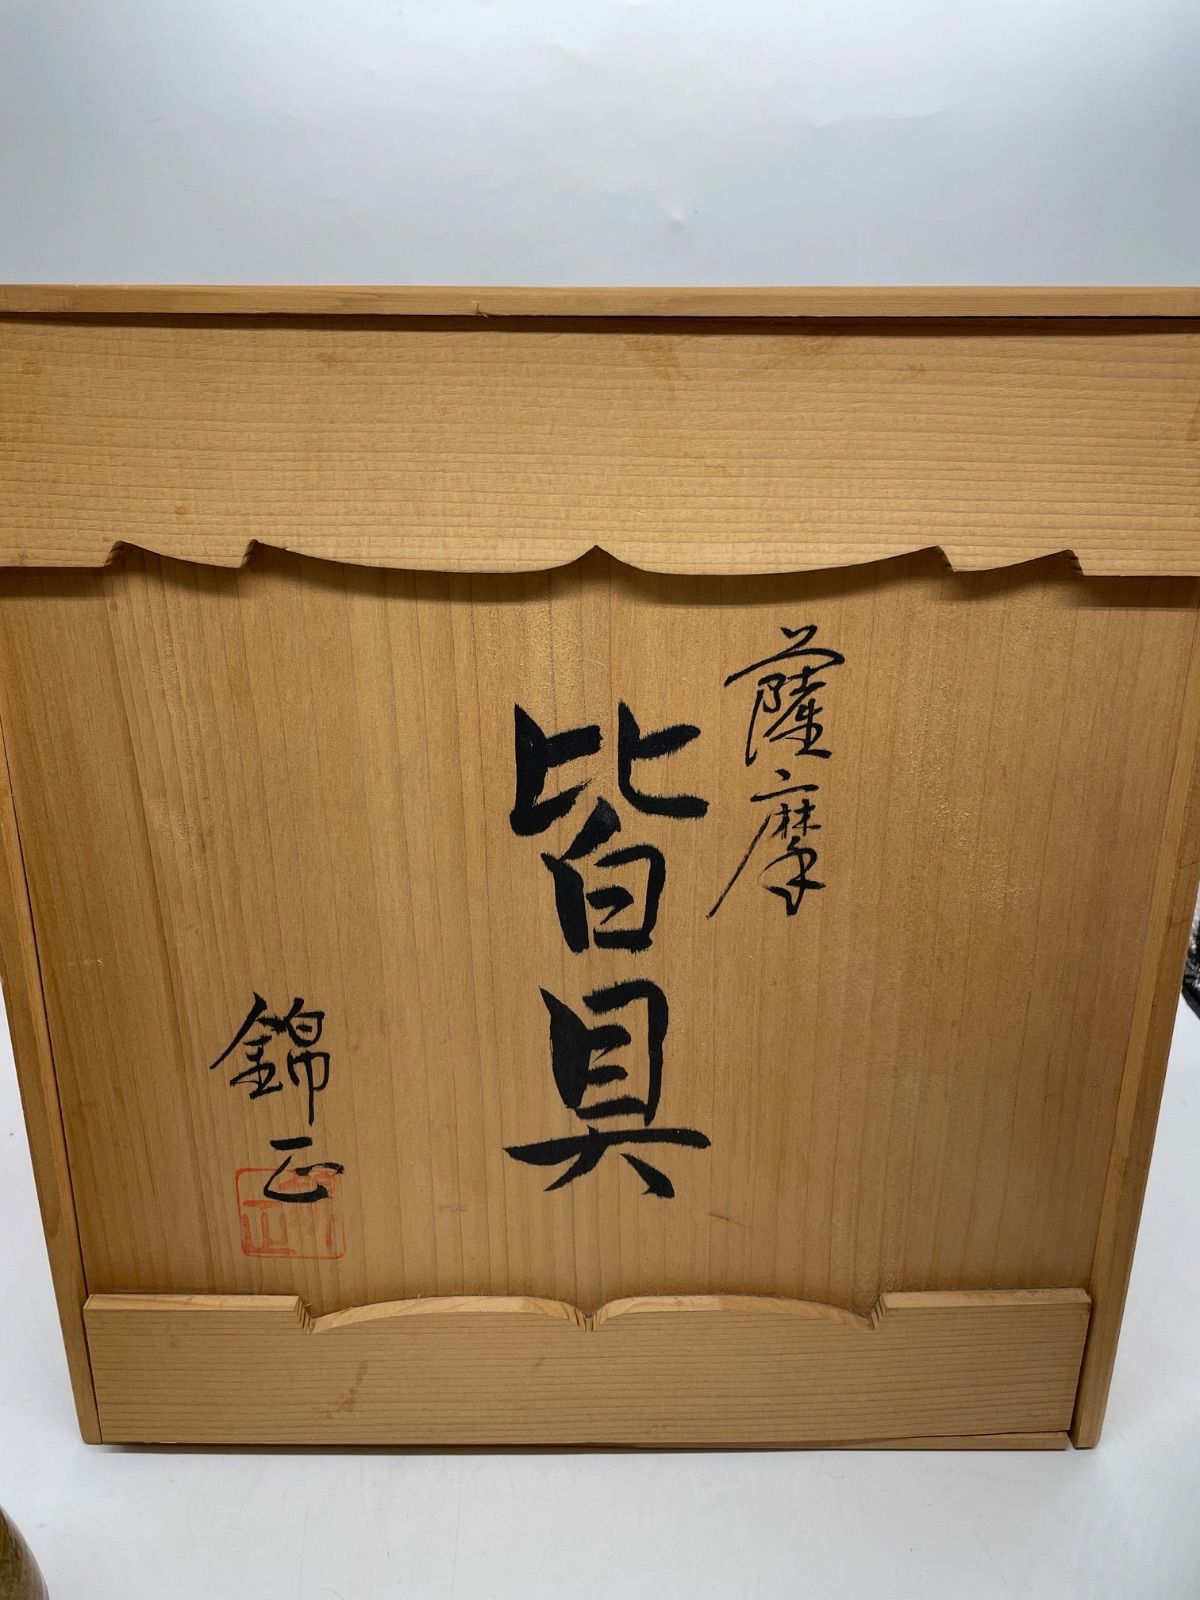 薩摩
皆具
錦正